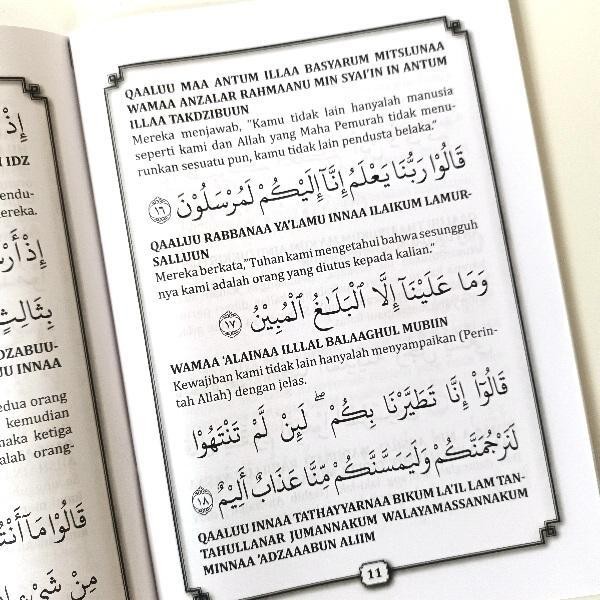 إِذْ
IDZ
endu-
ereka.
إِذْ أَرْ
بِثَالِثٍ
DZABUU-
U INNAA
edua orang
kemudian
naka ketiga
alah orang-
قَالُوْا مَآ أَنْتُ
مِنْ شَيْءٍ
QAALUU MAA ANTUM ILLAA BASYARUM MITSLUNAA
WAMAA ANZALAR RAHMAANU MIN SYAI'IN IN ANTUM
ILLAA TAKDZIBUUN
Mereka menjawab, "Kamu tidak lain hanyalah manusia
seperti kami dan Allah yang Maha Pemurah tidak menu-
runkan sesuatu pun, kamu tidak lain pendusta belaka."
قَالُوْا رَبُّنَا يَعْلَمُ إِنَّآ إِلَيْكُمْ لَمُرْسَلُوْنَ ١٦
QAALUU RABBANAA YA'LAMU INNAA ILAIKUM LAMUR-
SALLUUN
Mereka berkata,"Tuhan kami mengetahui bahwa sesungguh
nya kami adalah orang yang diutus kepada kalian."
وَمَا عَلَيْنَآ إِلَّا الْبَلَـٰغُ الْمُبِيْنُ ١٧
WAMAA 'ALAINAA ILLLAL BALAAGHUL MUBIIN
Kewajiban kami tidak lain hanyalah menyampaikan (Perin-
tah Allah) dengan jelas.
قَالُوْٓا إِنَّا تَطَيَّرْنَا بِكُمْ ۖ لَئِنْ لَّمْ تَنْتَهُوْا
لَنَرْجُمَنَّكُمْ وَلَيَمَسَّنَّكُمْ مِّنَّا عَذَابٌ أَلِيْمٌ ١٨
QAALUU INNAA TATHAYYARNAA BIKUM LA'IL LAM TAN-
TAHULLANAR JUMANNAKUM WALAYAMASSANNAKUM
MINNAA 'ADZAAABUN ALIIM
11